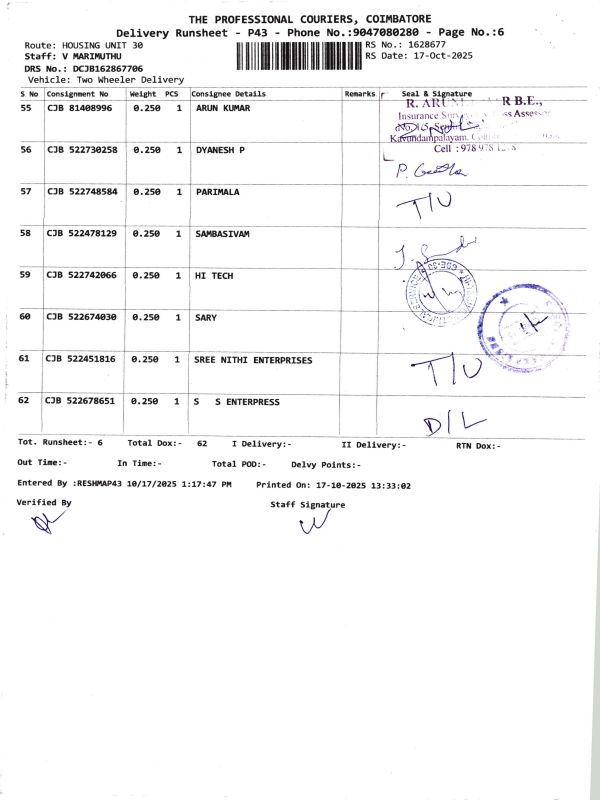 THE PROFESSIONAL COURIERS, COIMBATORE
Delivery Runsheet - P43 - Phone No.:9047080280 - Page No.:6
Route: HOUSING UNIT 30 RS No.: 1628677
Staff: V MARIMUTHU RS Date: 17-Oct-2025
DRS No.: DCJB162867706
Vehicle: Two Wheeler Delivery
S No Consignment No Weight PCS Consignee Details Remarks Seal & Signature
55 CJB 81408996 0.250 1 ARUN KUMAR
R. ARUN R B.E.,
Insurance Loss Assessor
Kavundampalayam,
Cell : 978 978
56 CJB 522730258 0.250 1 DYANESH P
P.
57 CJB 522748584 0.250 1 PARIMALA T/U
58 CJB 522478129 0.250 1 SAMBASIVAM
59 CJB 522742066 0.250 1 HI TECH
60 CJB 522674030 0.250 1 SARY
61 CJB 522451816 0.250 1 SREE NITHI ENTERPRISES T/U
62 CJB 522678651 0.250 1 S S ENTERPRESS D/L
Tot. Runsheet:- 6 Total Dox:- 62 I Delivery:- II Delivery:- RTN Dox:-
Out Time:- In Time:- Total POD:- Delvy Points:-
Entered By :RESHMAP43 10/17/2025 1:17:47 PM Printed On: 17-10-2025 13:33:02
Verified By Staff Signature